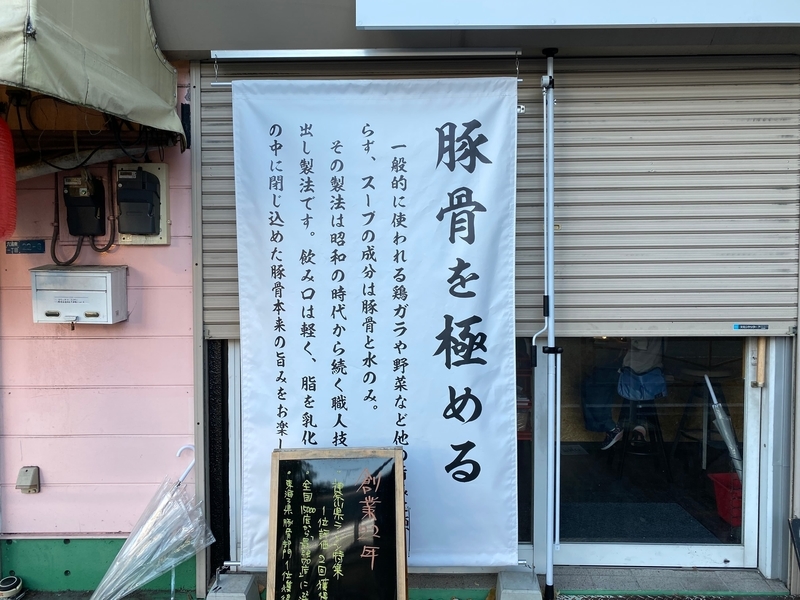 豚骨を極める
一般的に使われる鶏ガラや野菜など他の
らず、スープの成分は豚骨と水のみ。
その製法は昭和の時代から続く職人技
出し製法です。飲み口は軽く、脂を乳化
の中に閉じ込めた豚骨本来の旨みをお楽し
創業 年
神奈川県 特集
1位 2回獲得
全国
東海子県 豚骨部門 1位獲得